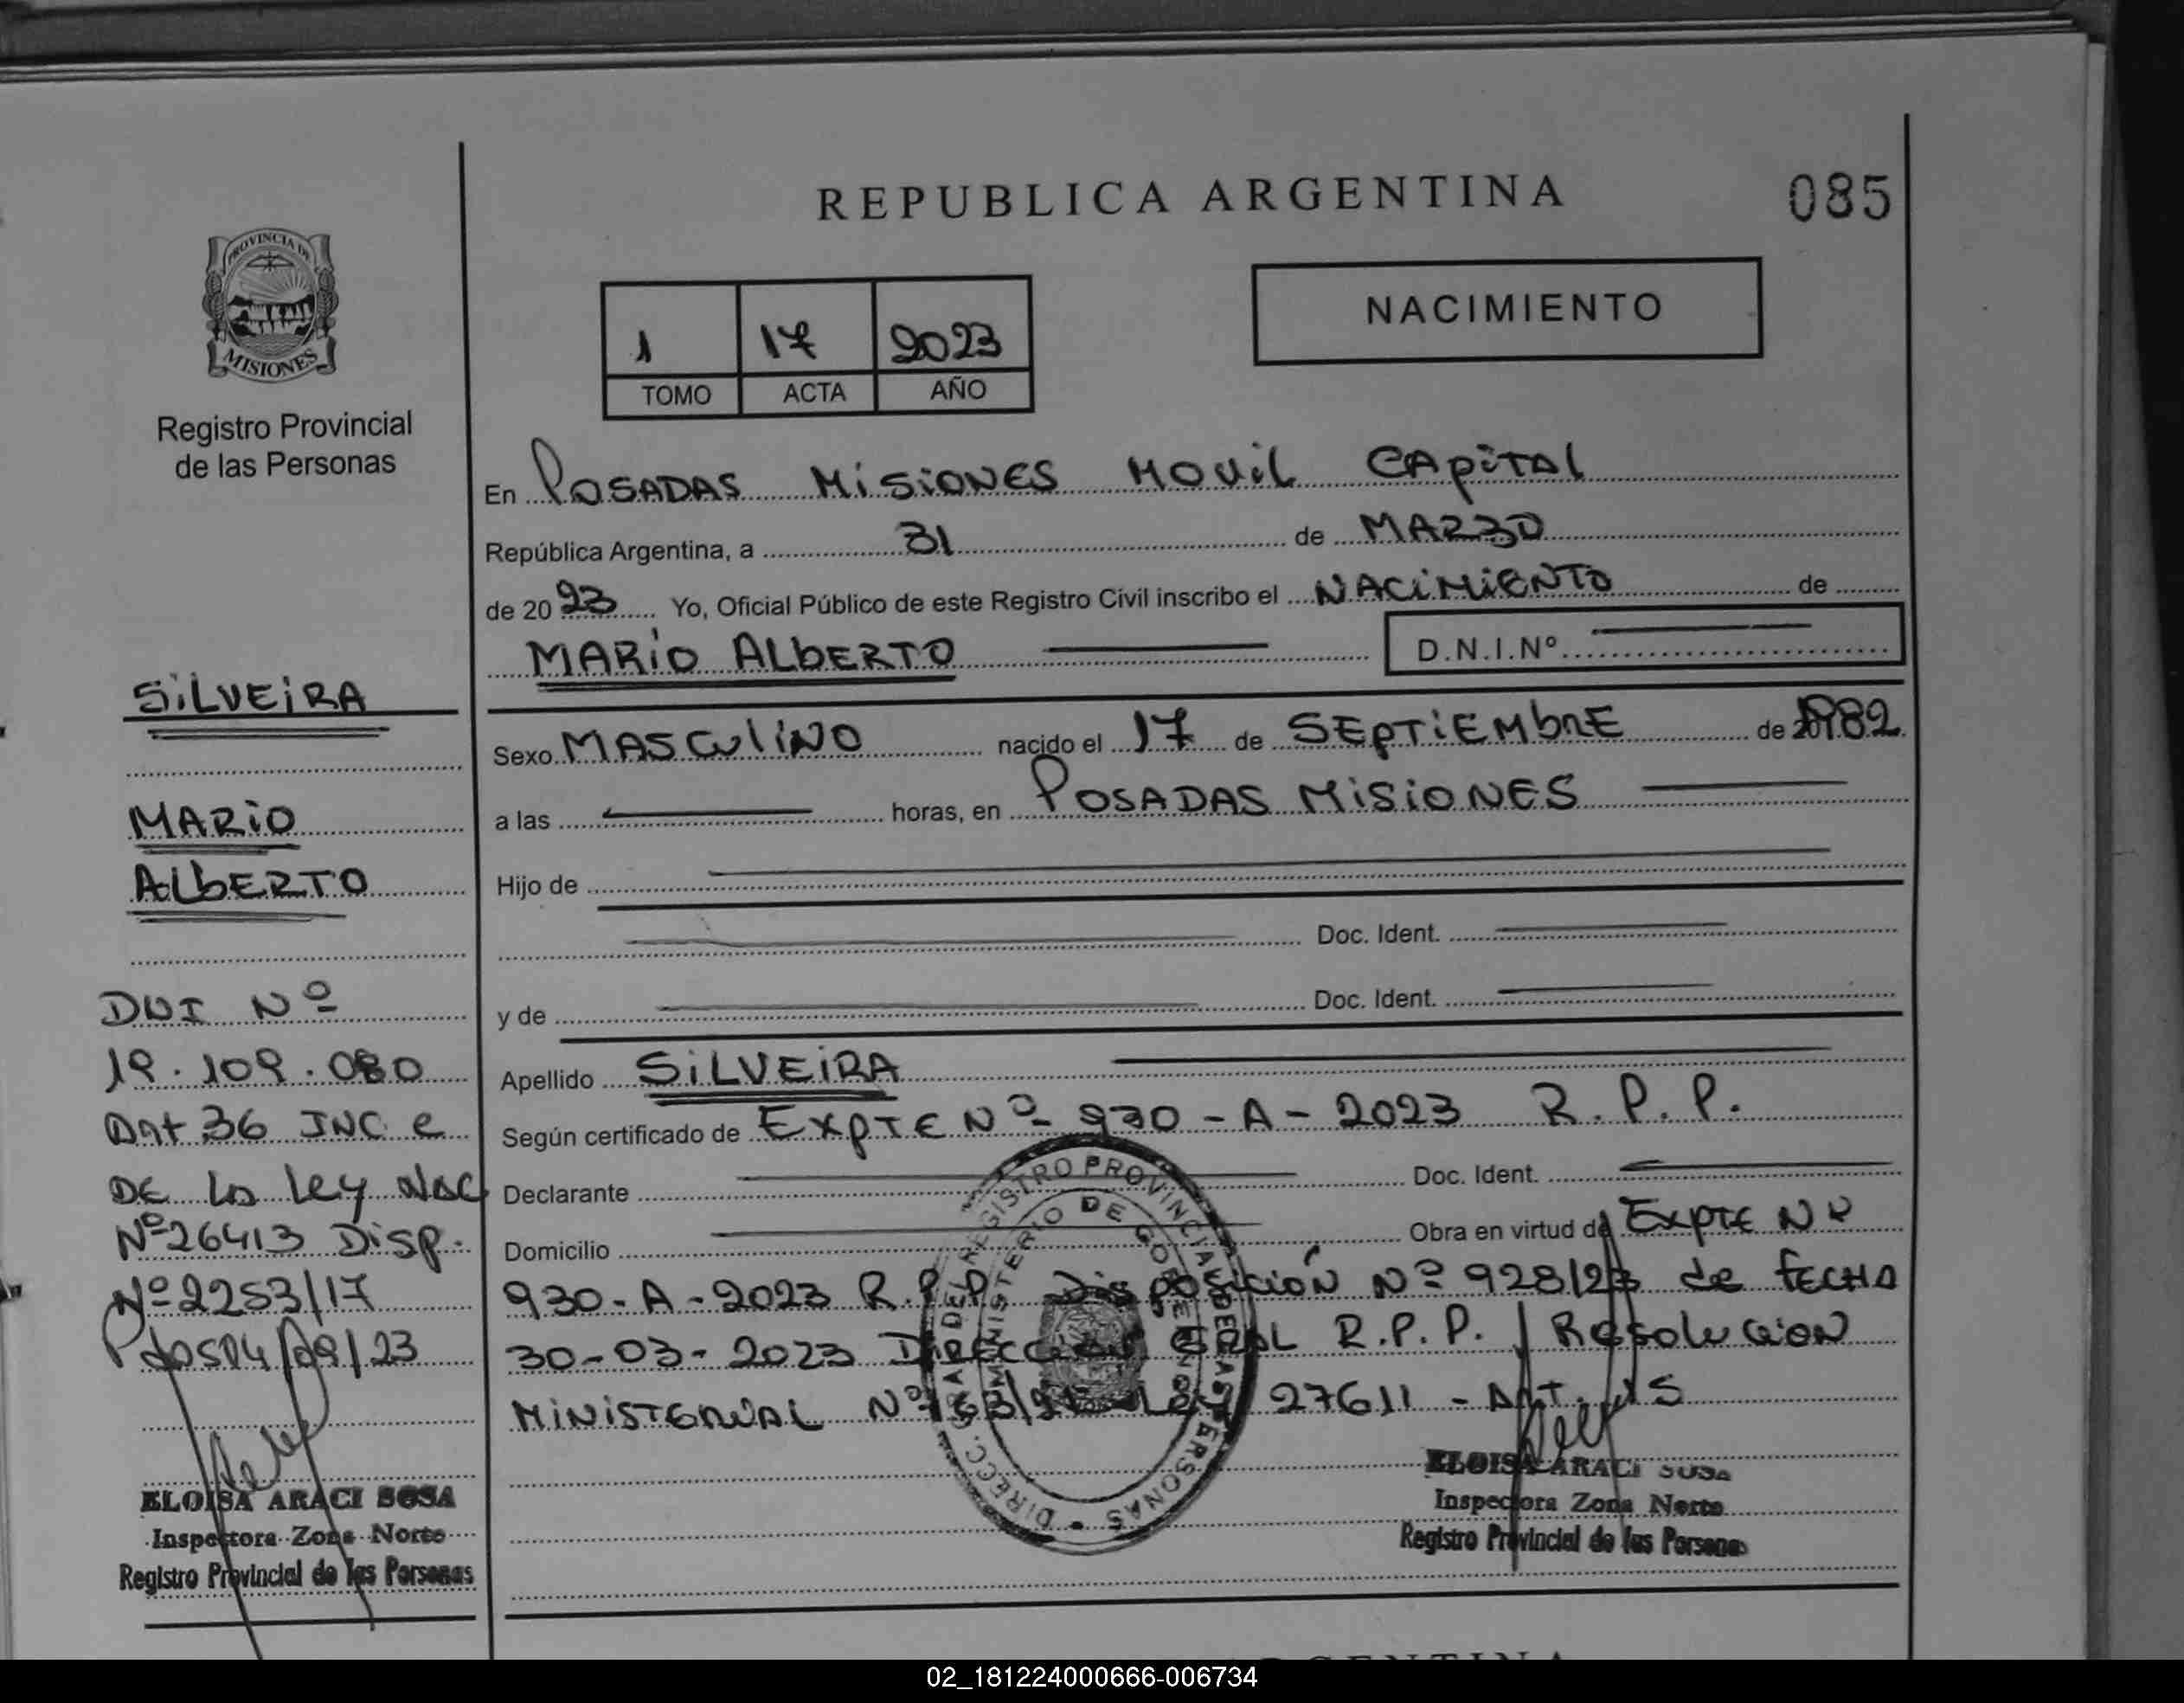 REPUBLICA ARGENTINA
085
PROVINCIA DE
MISIONES
Registro Provincial
de las Personas
NACIMIENTO
1 17 2023
TOMO ACTA AÑO
En POSADAS MiSiONES MOViL CAPiTAL
República Argentina, a 31 de MARZO
de 20 23 Yo, Oficial Público de este Registro Civil inscribo el NACiMiENTO de
MARiO ALbERTO D.N.I.Nº
Sexo MASCuliNO nacido el 17 de SEPTiEMbRE de 1982
a las horas, en POSADAS MiSiONES
Hijo de
Doc. Ident.
y de Doc. Ident.
Apellido SiLVEiRA
Según certificado de EXPTE Nº 930-A-2023 R.P.P.
Declarante Doc. Ident.
Domicilio Obra en virtud de EXPTE Nº
930-A-2023 R.P.P. Disposición Nº 928/23 de FECHA
30-03-2023 DiRECCiON GRAL R.P.P. / Resolucion
MiNiSTERiAL Nº Ley 27611 - ART.
ELOISA ARACI SOSA
Inspectora Zona Norte
Registro Provincial de las Personas
DIRECC. GRAL. DEL REGISTRO PROVINCIAL DE LAS PERSONAS
MINISTERIO DE GOBIERNO
SiLVEiRA
MARiO
ALbERTO
DNI Nº
19.109.080
Art 36 INC e
DE La Ley NAC
Nº26413 Disp.
Nº2253/17
Pdas 04/09/23
ELOISA ARACI SOSA
Inspectora Zona Norte
Registro Provincial de las Personas
02_181224000666-006734